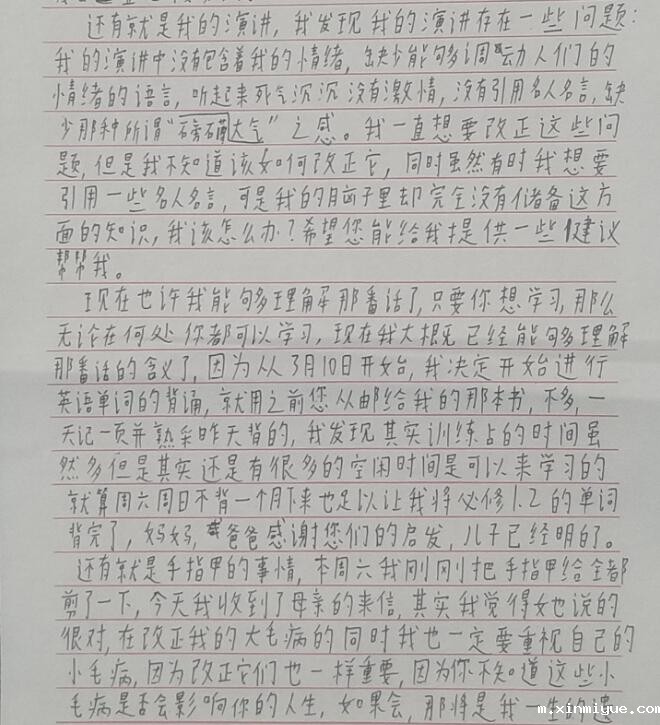 还有就是我的演讲，我发现我的演讲存在一些问题：
我的演讲中没有包含着我的情绪，缺少能够多调动人们的
情绪的语言，听起来死气沉沉没有激情，没有引用名人名言，缺
少那种所谓“磅礴大气”之感。我一直想要改正这些问
题，但是我不知道该如何改正它，同时虽然有时我想要
引用一些名人名言，可是我的脑子里却完全没有储备这方
面的知识，我该怎么办？希望您能给我提供一些建议
帮帮我。
现在也许我能够多理解那番话了，只要你想学习，那么
无论在何处你都可以学习，现在我大概已经能够多理解
那番话的含义了，因为从3月10日开始，我决定开始进行
英语单词的背诵，就用之前您从邮给我的那本书，不多，一
天记一页并熟悉昨天背的，我发现其实训练占的时间虽
然多但是其实还是有很多的空闲时间是可以来学习的
就算周六周日不背一个月下来也足以让我将必修1.2的单词
背完了，妈妈，爸爸感谢您们的启发，儿子已经明白了。
还有就是手指甲的事情，本周六我刚刚把手指甲给全都
剪了一下，今天我收到了母亲的来信，其实我觉得她说的
很对，在改正我的大毛病的同时我也一定要重视自己的
小毛病，因为改正它们也一样重要，因为你不知道这些小
毛病是否会影响你的人生，如果会，那将是我一生的遗
m.xinmiyue.com